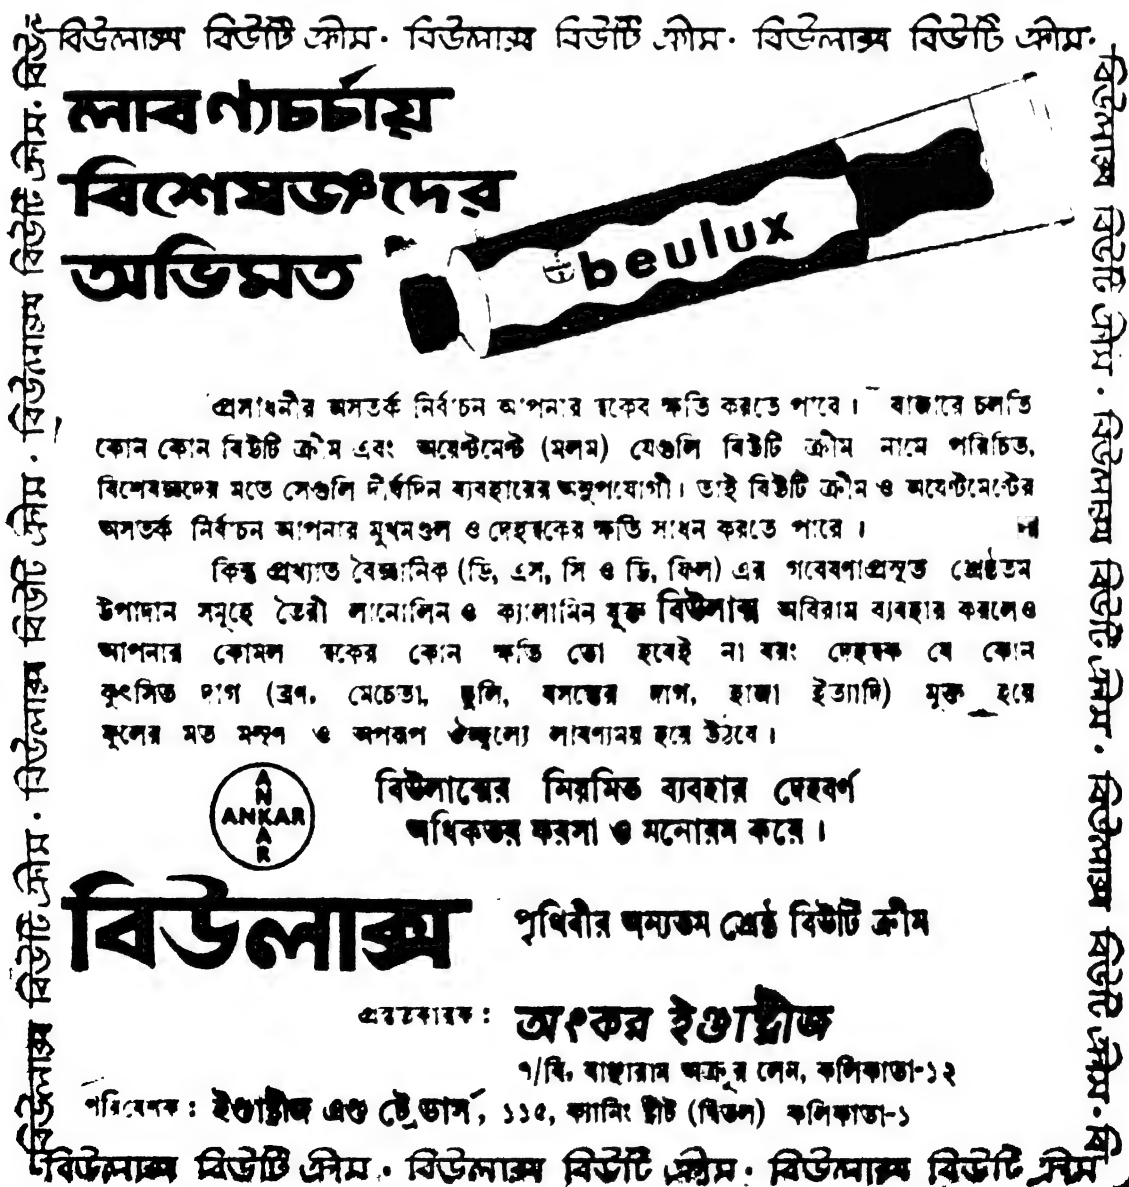 বিউলাক্স বিউটি ক্রীম · বিউলাক্স বিউটি ক্রীম · বিউলাক্স বিউটি ক্রীম ·
লাবণ্যচর্চায়
বিশেষজ্ঞদের
অভিমত
beulux
প্রসাধনীর অসতর্ক নির্বাচন আপনার ত্বকের ক্ষতি করতে পারে। বাজারে চলতি
কোন কোন বিউটি ক্রীম এবং অয়েন্টমেন্ট (মলম) যেগুলি বিউটি ক্রীম নামে পরিচিত,
বিশেষজ্ঞদের মতে সেগুলি দীর্ঘদিন ব্যবহারের অনুপযোগী। তাই বিউটি ক্রীম ও অয়েণ্টমেণ্টের
অসতর্ক নির্বাচন আপনার মুখমণ্ডল ও দেহত্বকের ক্ষতি সাধন করতে পারে।
কিন্তু প্রখ্যাত বৈজ্ঞানিক (ডি, এস, সি ও ডি, ফিল) এর গবেষণাপ্রসূত শ্রেষ্ঠতম
উপাদান সমূহে তৈরী লানোলিন ও ক্যালামিন যুক্ত বিউলাক্স অবিরাম ব্যবহার করলেও
আপনার কোমল ত্বকের কোন ক্ষতি তো হবেই না বরং দেহত্বক যে কোন
কুৎসিত দাগ (ব্রণ, মেচেতা, ছুলি, বসন্তের দাগ, হাজা ইত্যাদি) মুক্ত হয়ে
ফুলের মত মসৃণ ও অপরূপ ঔজ্জ্বল্যে লাবণ্যময় হয়ে উঠবে।
ANKAR
বিউলাক্সের নিয়মিত ব্যবহার দেহবর্ণ
অধিকতর ফরসা ও মনোরম করে।
বিউলাক্স পৃথিবীর অন্যতম শ্রেষ্ঠ বিউটি ক্রীম
প্রস্তুতকারক : অংকর ইণ্ডাষ্ট্রীজ
৭/বি, বাঞ্ছারাম অক্রূর লেন, কলিকাতা-১২
পরিবেশক : ইণ্ডাষ্ট্রীজ এণ্ড ট্রেডার্স, ১১৫, ক্যানিং ষ্ট্রীট (দ্বিতল) কলিকাতা-১
বিউলাক্স বিউটি ক্রীম · বিউলাক্স বিউটি ক্রীম · বিউলাক্স বিউটি ক্রীম